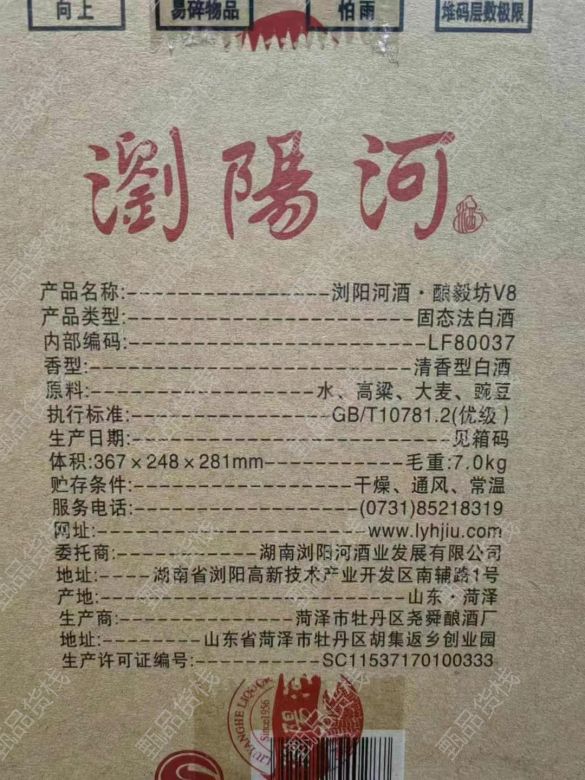 向上 易碎物品 怕雨 堆码层数极限
瀏陽河
产品名称:浏阳河酒·酿毅坊V8
产品类型:固态法白酒
内部编码:LF80037
香型:清香型白酒
原料:水、高粱、大麦、豌豆
执行标准:GB/T10781.2(优级)
生产日期:见箱码
体积:367×248×281mm 毛重:7.0kg
贮存条件:干燥、通风、常温
服务电话:(0731)85218319
网址:www.lyhjiu.com
委托商:湖南浏阳河酒业发展有限公司
地址:湖南省浏阳高新技术产业开发区南辅路1号
产地:山东·菏泽
生产商:菏泽市牡丹区尧舜酿酒厂
地址:山东省菏泽市牡丹区胡集返乡创业园
生产许可证编号:SC11537170100333
Since1956
甄品货栈